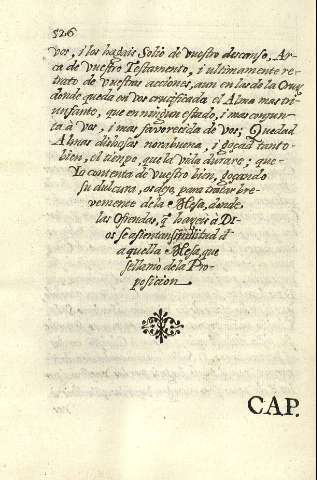 526
vos, i los hagais Solio de vuestro descanso, Ar-
ca de vuestro Testamento, i ultimamente re-
trato de vuestras acciones, aun en las de la Cruz,
donde queda con vos crucificada el Alma mas tri-
unfante, que en ningun estado, i mas conjun-
ta à Vos, i mas favorecida de vos; Quedad
Almas dichosas norabuena, i goçad tanto
bien, el tienpo, que la vida durare; que
Yo contenta de vuestro bien, goçando
su dulcura, os dejo para tratar bre-
vemente de la Mesa, donde
las Ofrendas, q̃ haceis à Di-
os se asientan similitud đ
aquella Mesa, que
se llamo de la Pro-
posicion
CAP.